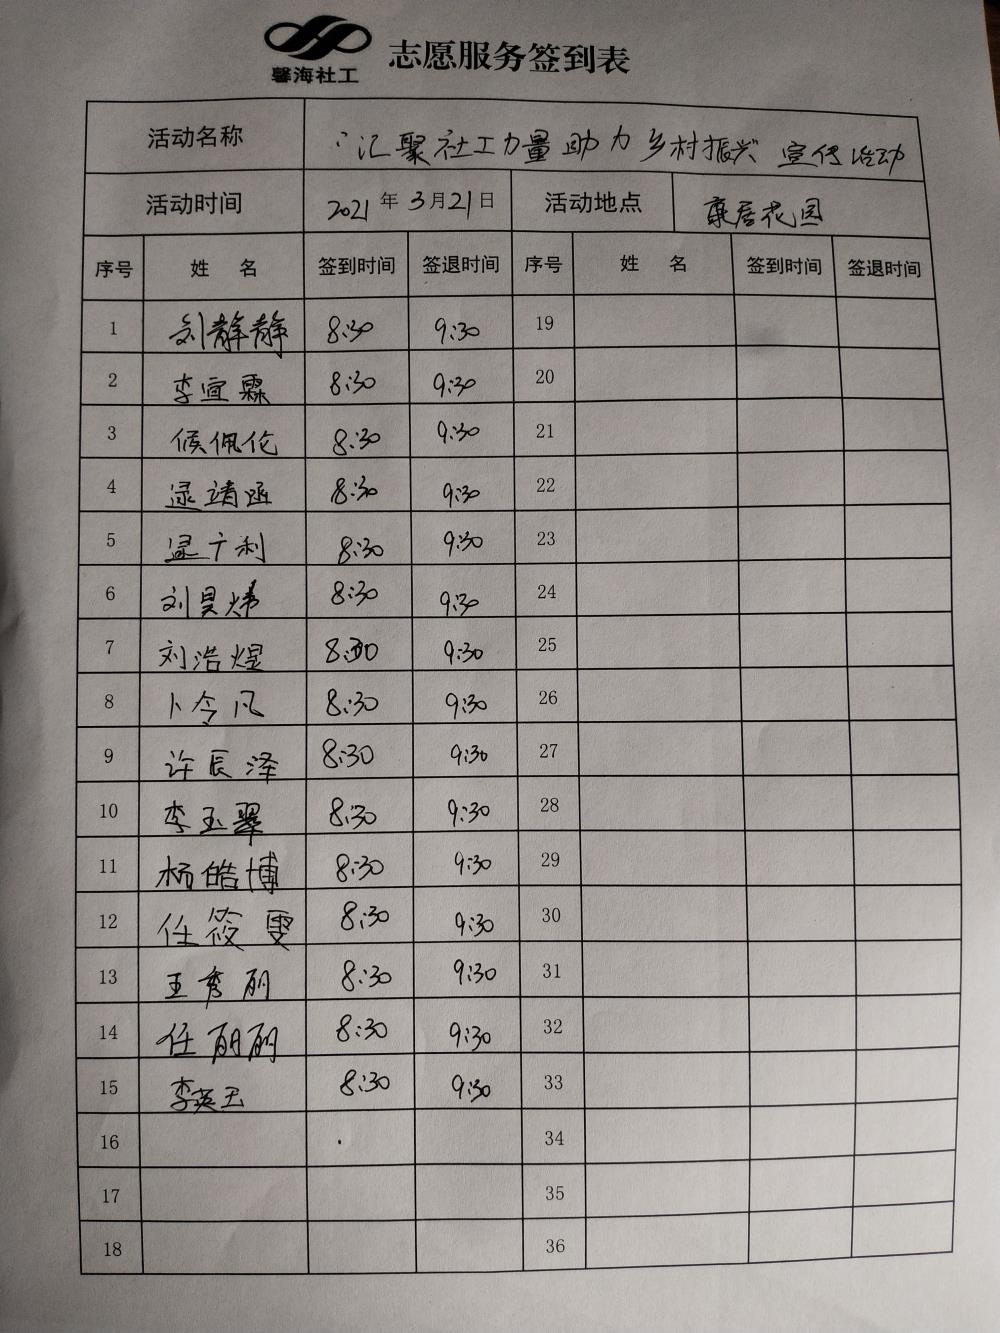 馨海社工
志愿服务签到表
活动名称 "汇聚社工力量助力乡村振兴"宣传活动
活动时间 2021年3月21日 活动地点 康居花园
序号 姓名 签到时间 签退时间 序号 姓名 签到时间 签退时间
1 刘静静 8:30 9:30 19
2 李宜霖 8:30 9:30 20
3 候佩伦 8:30 9:30 21
4 逯靖函 8:30 9:30 22
5 逯广利 8:30 9:30 23
6 刘昊炜 8:30 9:30 24
7 刘浩煜 8:30 9:30 25
8 卜令凡 8:30 9:30 26
9 许辰泽 8:30 9:30 27
10 李玉翠 8:30 9:30 28
11 杨皓博 8:30 9:30 29
12 任筱雯 8:30 9:30 30
13 王秀丽 8:30 9:30 31
14 任丽丽 8:30 9:30 32
15 李英玉 8:30 9:30 33
16 34
17 35
18 36